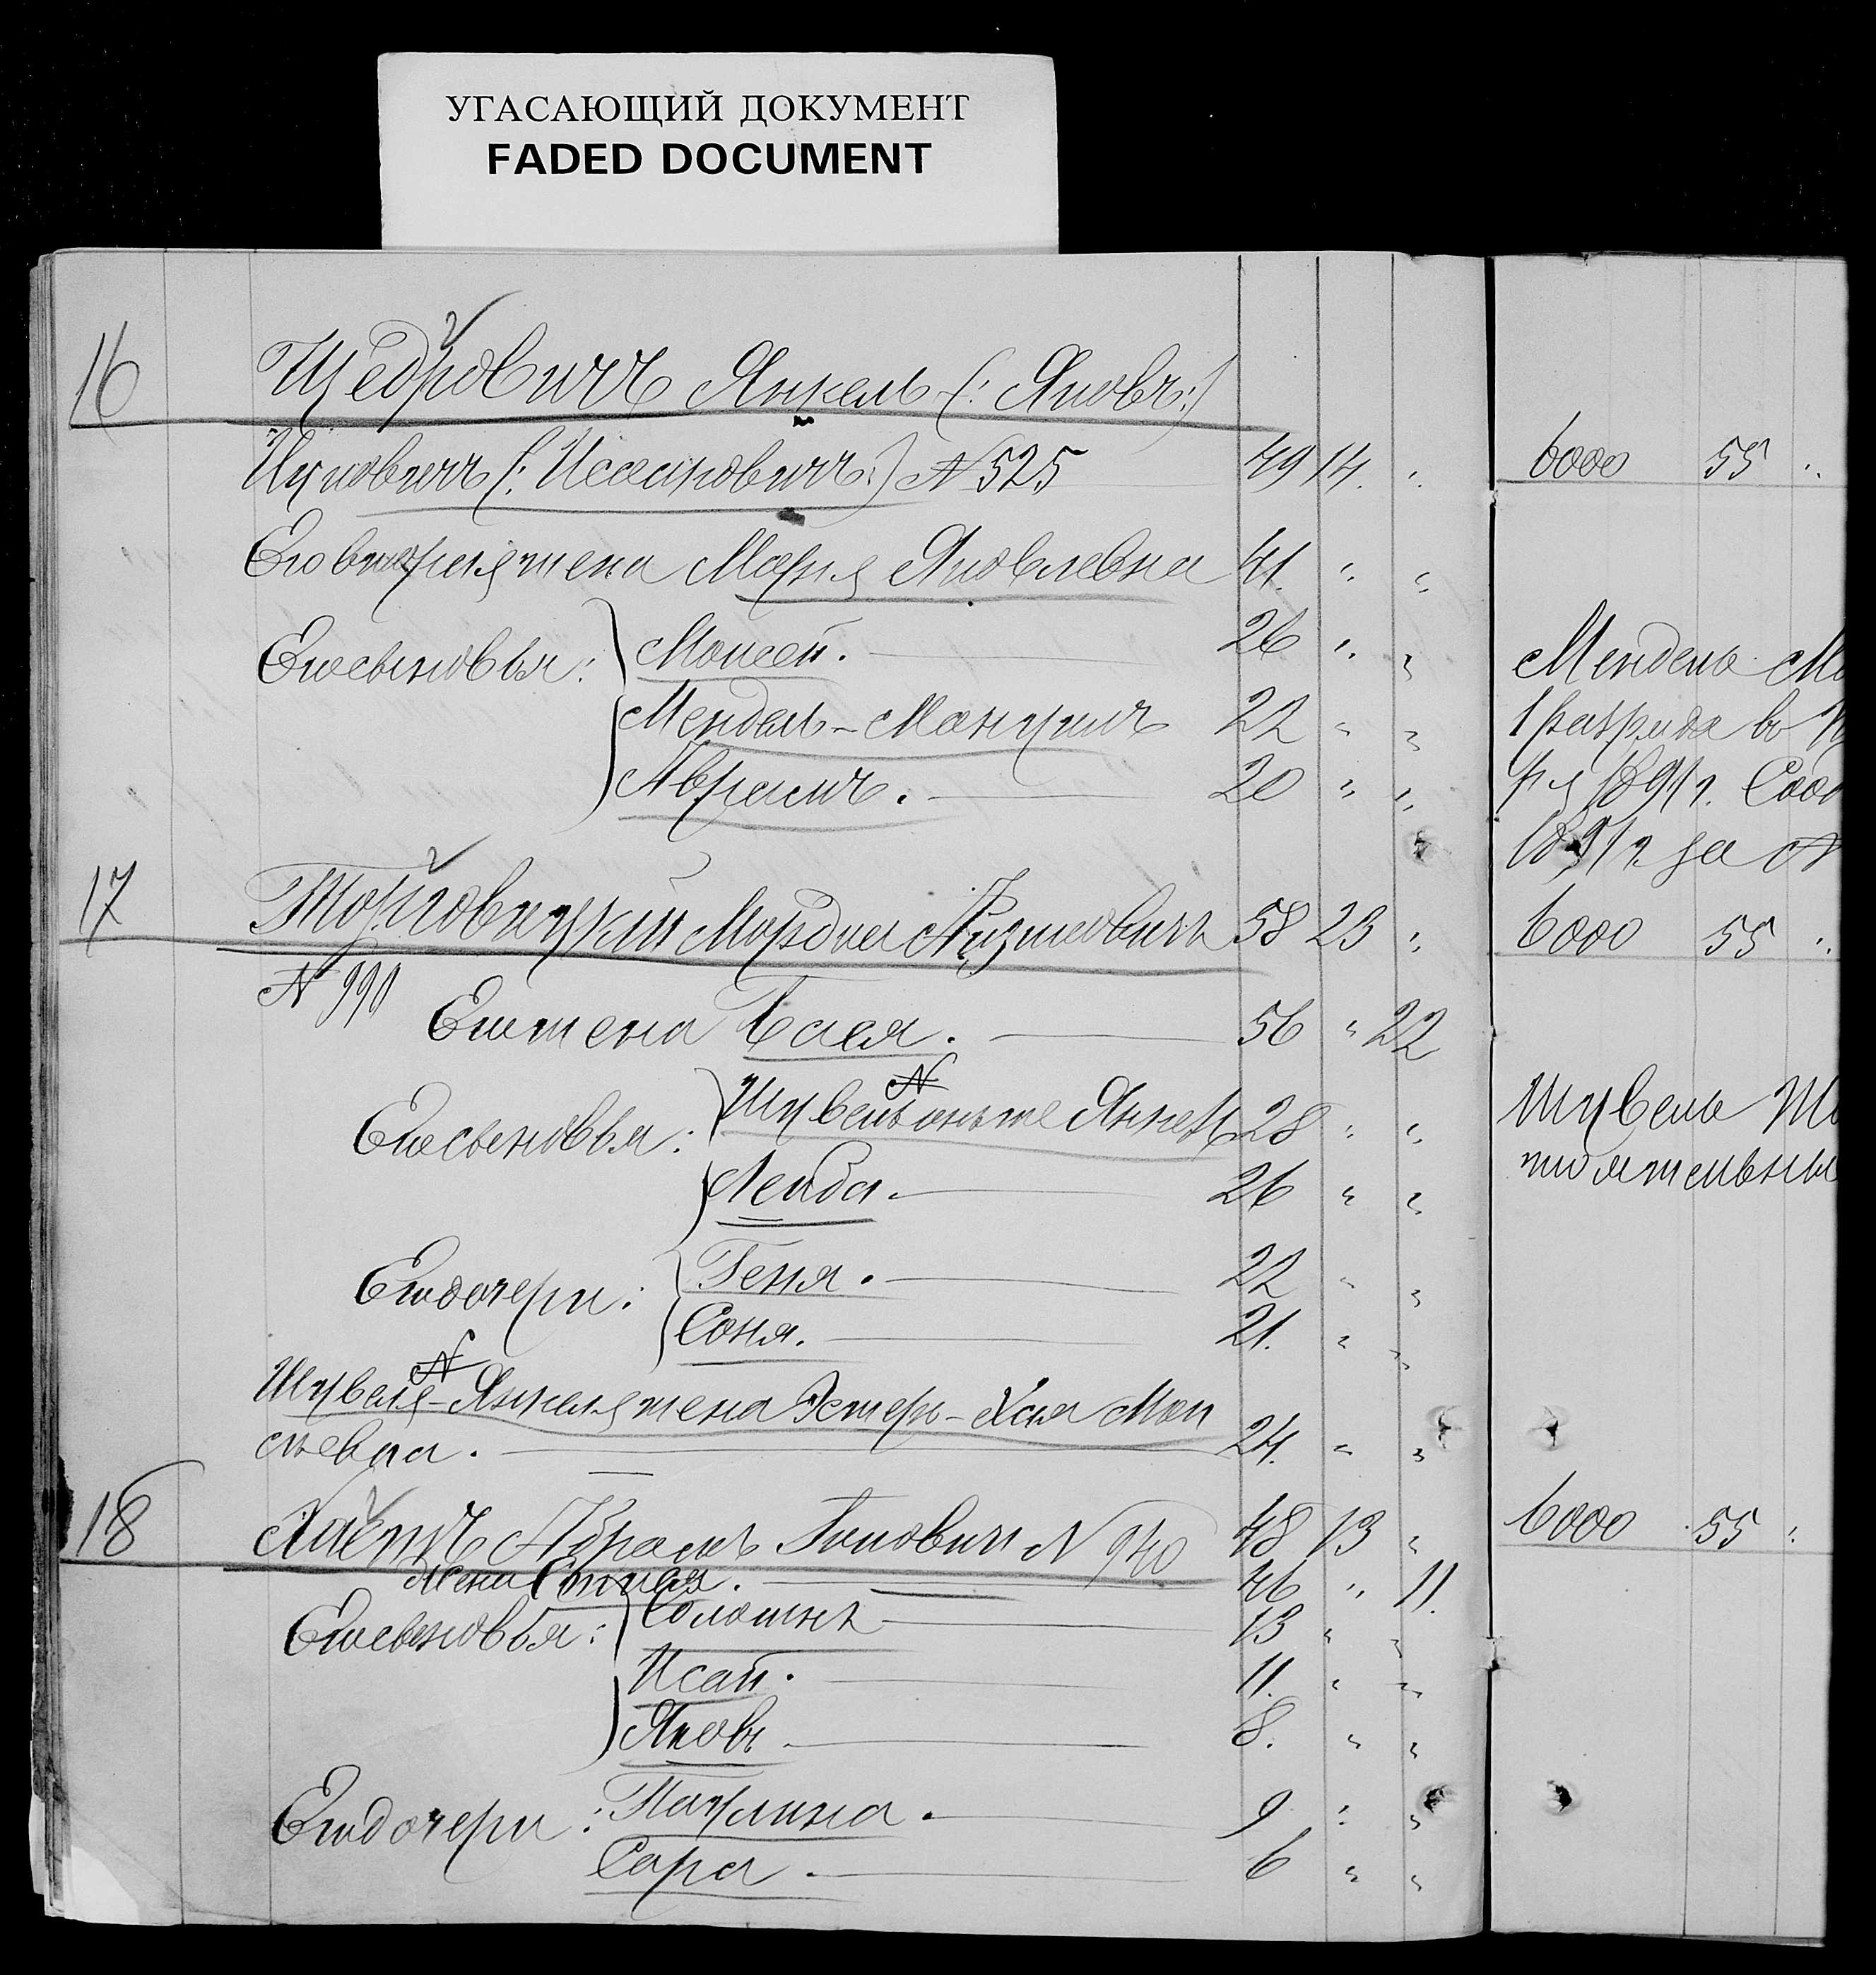 УГАСАЮЩИЙ ДОКУМЕНТ
FADED DOCUMENT
16 Щедровичъ Янкель (: Яковъ:)
Ицковичъ (: Исааковичъ:) № 525 49 14. " 6000 55 "
Его вторая жена Марья Яковлевна 41. " "
Его сыновья: Моисей. 26 " "
Мендель-Манусъ 22 " "
Абрамъ. 20 " "
Мендель
1 разряда въ
1891 г.
1891 г. за №
17 Торговицкій Мордка Айзиковичъ 58 23 " 6000 55 "
№ 990
Его жена Бася. 56 " 22
Его сыновья: Шувель онъ же Янкель 28 " "
Лейба. 26 " "
Шувель
Его дочери: Геня. 22 " "
Соня. 21. " "
Шувеля-Янкеля жена Эстеръ-Хая Мои
сѣевна. 24. " "
18 Абрамъ № 940 48 13 " 6000 55 "
жена 46 " 11.
Его сыновья: Соломонъ 13 " "
Исай. 11. " "
Яковъ 8. " "
Его дочери: Паулина. 9 " "
Сара. 6 " "